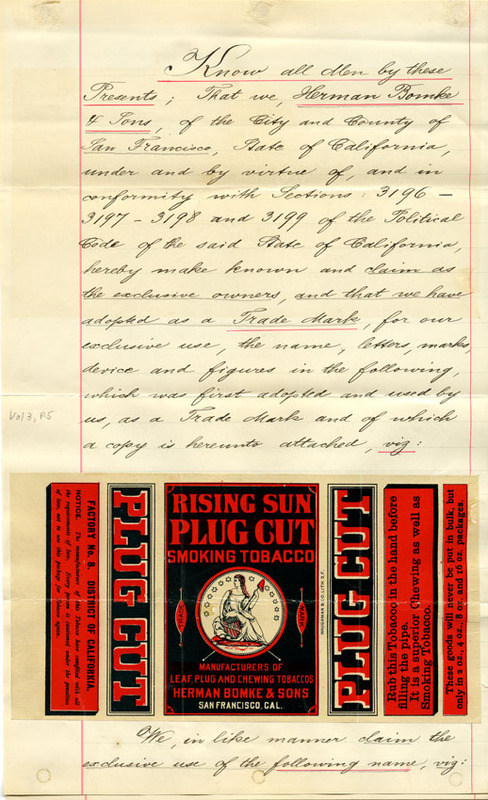 Know all Men by these
Presents; That we, Herman Bomke
& Sons, of the City and County of
San Francisco, State of California,
under and by virtue of, and in
conformity with Sections: 3196 —
3197 – 3198 and 3199 of the Political
Code of the said State of California,
hereby make known and claim as
the exclusive owners, and that we have
adopted as a Trade Mark, for our
exclusive use, the name, letters, marks,
device and figures in the following,
which was first adopted and used by
us, as a Trade Mark and of which
a copy is hereunto attached, viz:
Vol 3, P5
FACTORY No. 8. DISTRICT OF CALIFORNIA.
NOTICE. The manufacturers of this Tobacco have complied with all
the requirements of law. Every person is cautioned under the penalties
of law, not to use this package for Tobacco again.
PLUG CUT
RISING SUN
PLUG CUT
SMOKING TOBACCO
TRADE
MARK
MANUFACTURERS OF
LEAF, PLUG AND CHEWING TOBACCOS
HERMAN BOMKE & SONS
SAN FRANCISCO, CAL.
& CO. LITH. S.F.
PLUG CUT
Rub this Tobacco in the hand before
filling the pipe.
It is a superior Chewing as well as
Smoking Tobacco.
These goods will never be put in bulk, but
only in 2 oz., 4 oz., 8 oz. and 16 oz. packages.
We, in like manner claim the
exclusive use of the following name, viz: